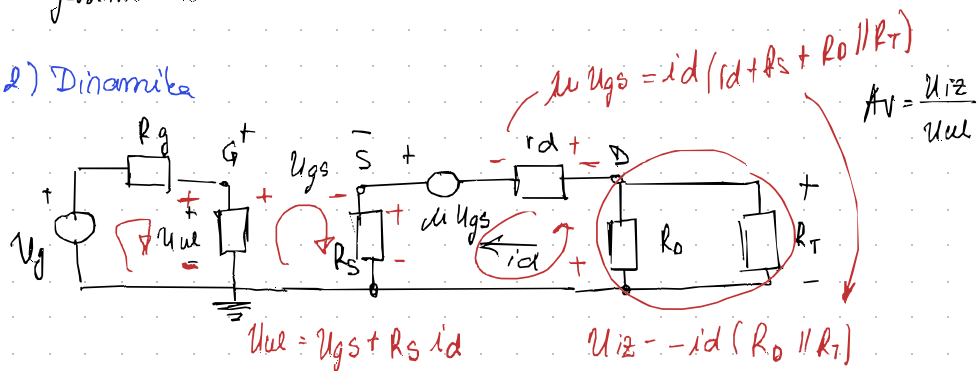 2) Dinamika
μ Ugs = id (rd + Rs + RD // RT)
Av = Uiz / Uul
Rg
G
+
Ugs
S
-
+
μ Ugs
-
rd
+
-
D
+
Ug
+
+
Uul
-
+
-
RS
+
-
id
+
RD
RT
+
-
Uul = Ugs + RS id
Uiz - -id ( RD // RT )